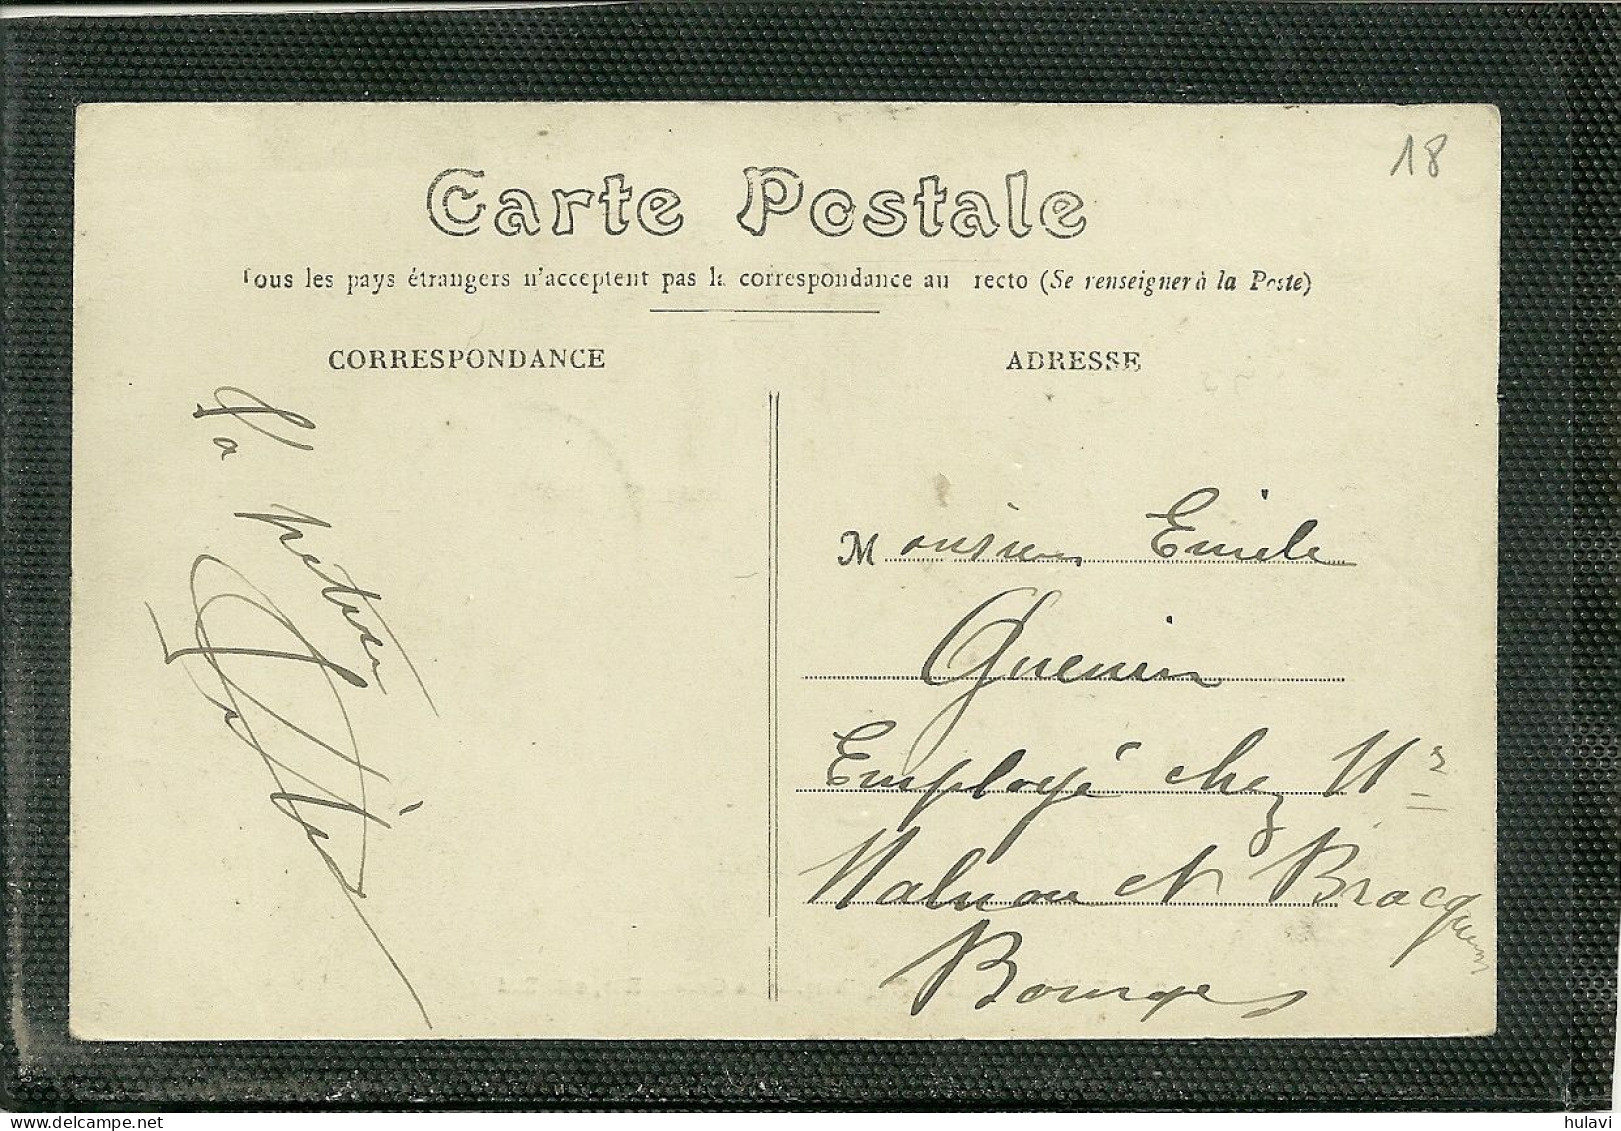 18
Carte Postale
Tous les pays étrangers n'acceptent pas la correspondance au recto (Se renseigner à la Poste)
CORRESPONDANCE
ADRESSE
Monsieur Emile
Quenin
Employé chez Mr
et Bracquem
Bourges
hulavi